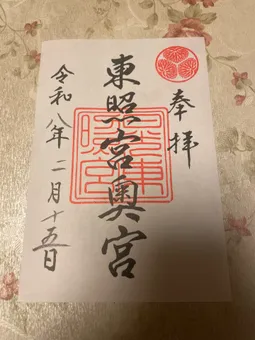 奉拝
東照宮奥宮
令和八年二月十五日